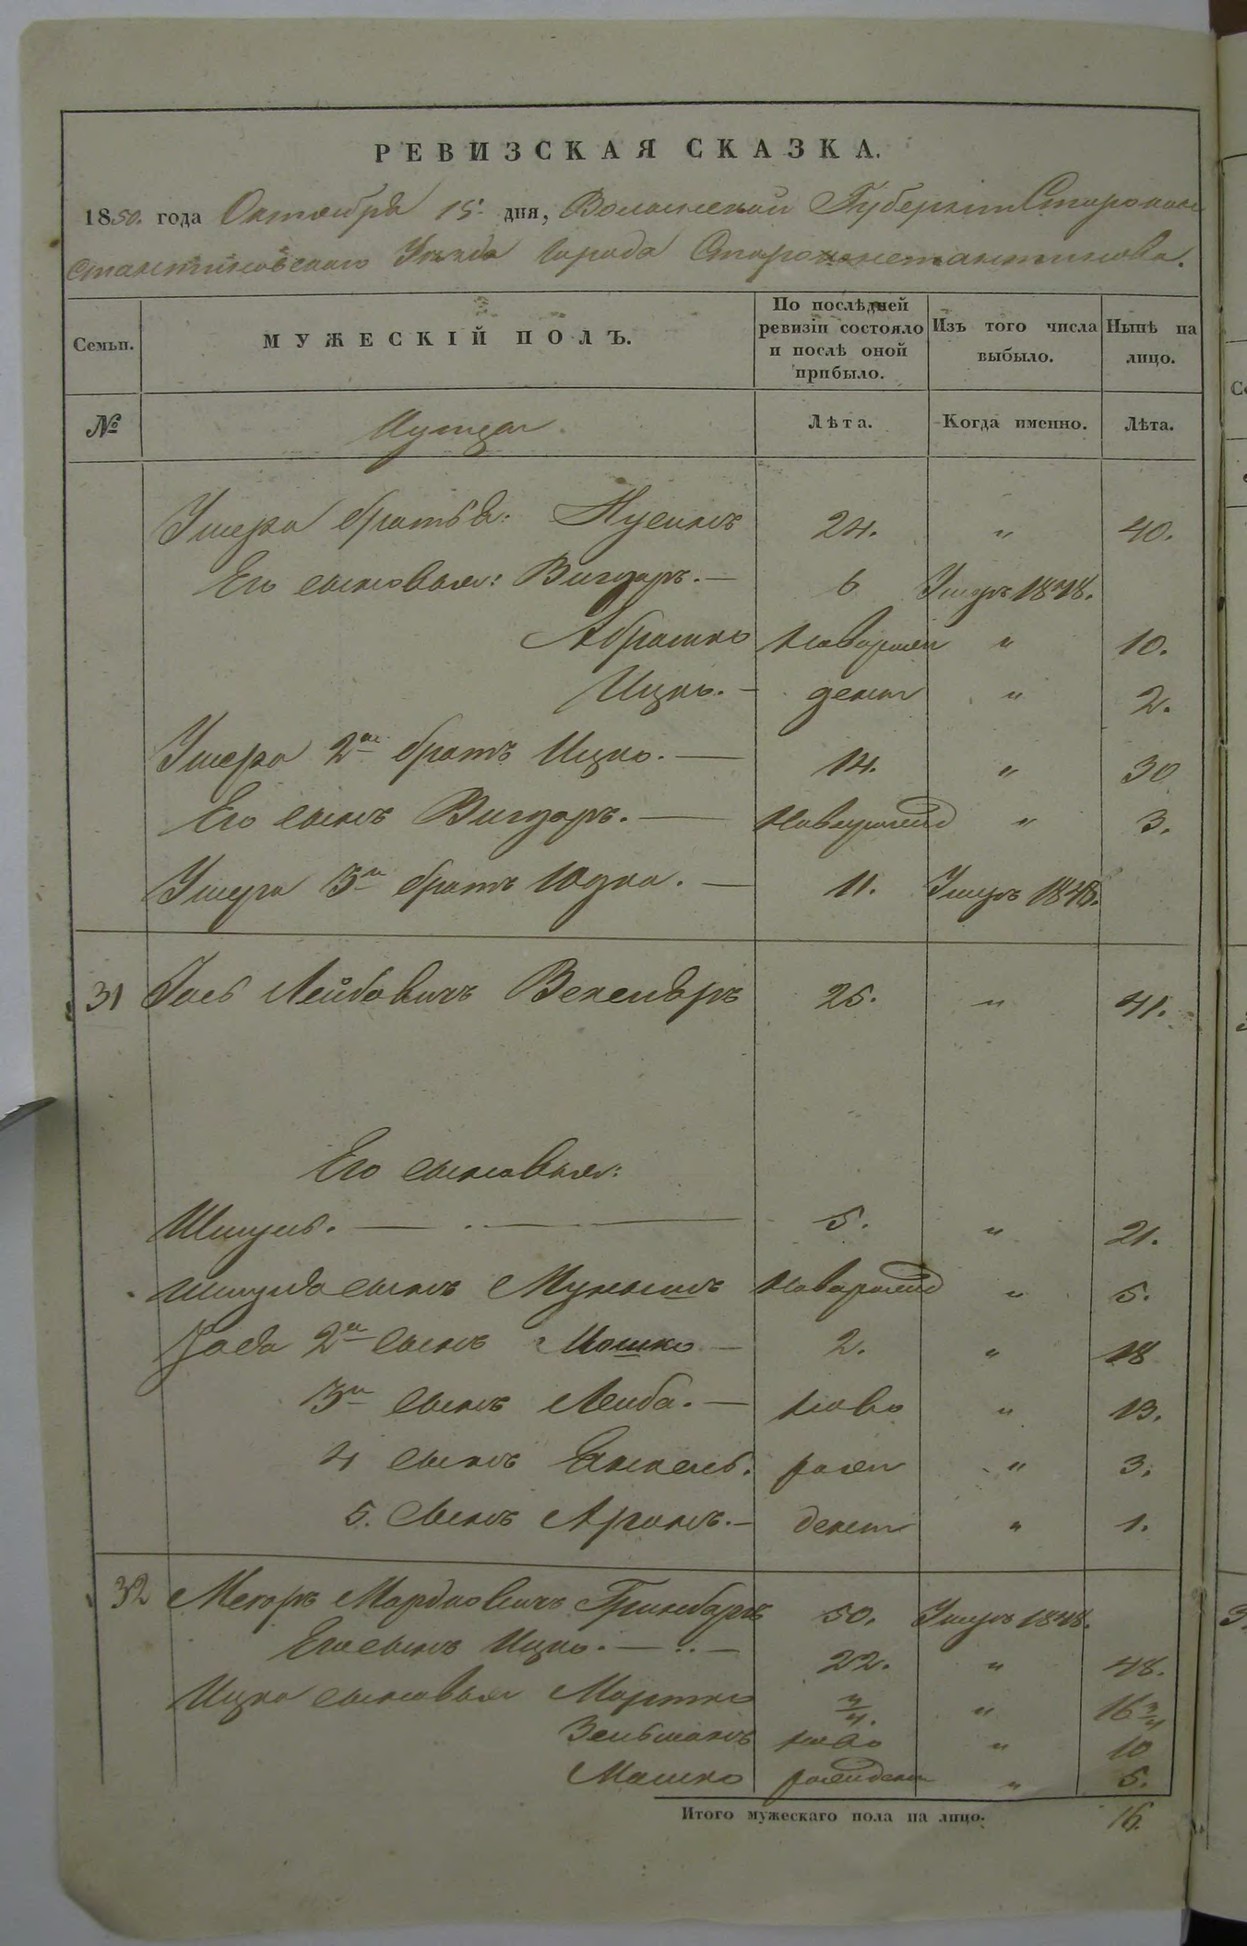 РЕВИЗСКАЯ СКАЗКА.
1850. года Октября 15. дня, Волынской Губерніи Старокон
стантиновскаго Уѣзда Города Староконстантинова.
Семьи. МУЖЕСКІЙ ПОЛЪ. По послѣдней ревизіи состояло и послѣ оной прибыло. Изъ того числа выбыло. Нынѣ на лицо.
№ Лѣта. Когда именно. Лѣта.
братья: Нусинъ 24. " 40.
Его сыновья: Вигдоръ. — 6 Умеръ 1848.
Абрамко новорож " 10.
Ицко. — денъ " 2.
2й братъ Ицко. — 14. " 30
Его сынъ Вигдоръ. — новорожд " 3.
3й братъ Юдка. — 11. Умеръ 1848.
31 Іось Лейбовичъ Векслъръ 25. " 41.
Его сыновья:
Шмуль. — 5. " 21.
Шмуля сынъ новорожд " 5.
Іося 2й сынъ Мошко — 2. " 18
3й сынъ Лейба. — ново " 13.
4 сынъ Янкель. рож " 3.
5. сынъ Аронъ. — денъ " 1.
32 Меоръ Мордковичъ Гринбаръ 50. Умеръ 1848.
Его сынъ Ицко. — 22. " 48.
Ицка сыновья 3/4. " 16 3/4
Зельманъ ново " 10
Мошко рожден " 5.
Итого мужескаго пола на лицо: 16.